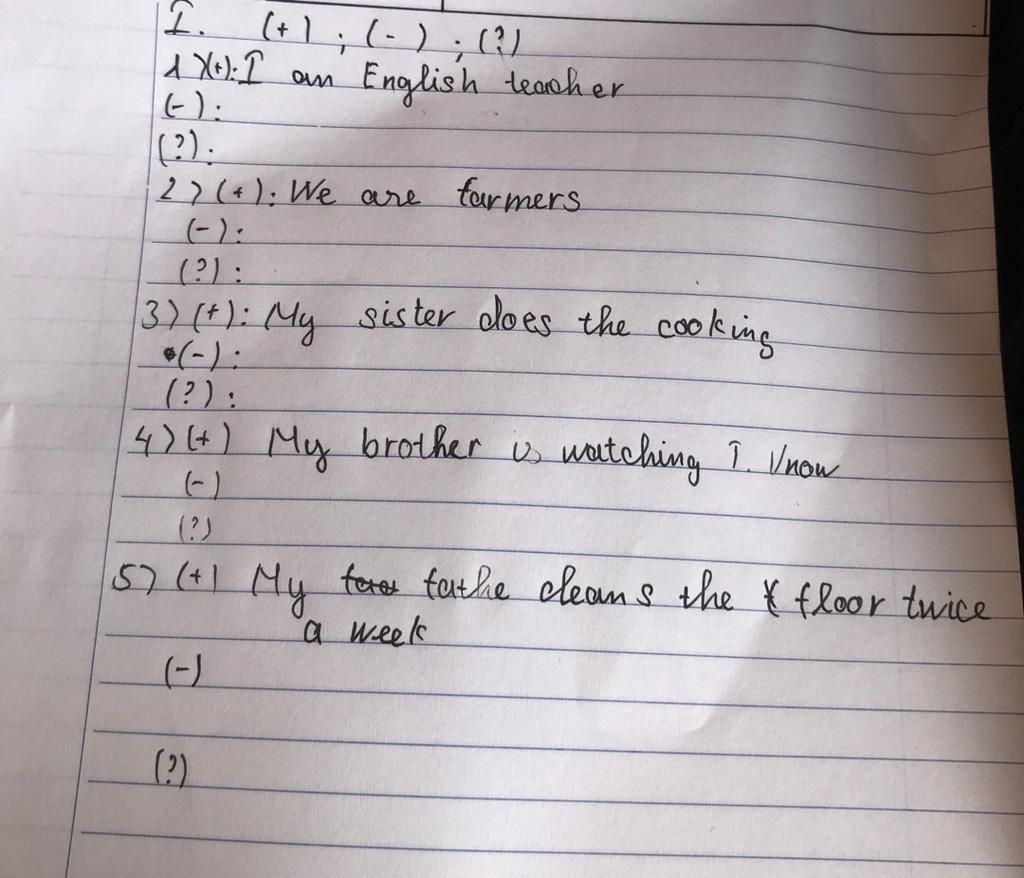 I. (+) ; (-) ; (?)
1)(+): I am English teacher
(-):
(?):
2) (+): We are farmers
(-):
(?):
3) (+): My sister does the cooking
(-):
(?):
4) (+) My brother is watching T. V now
(-)
(?)
5) (+) My fathe cleans the floor twice
a week
(-)
(?)